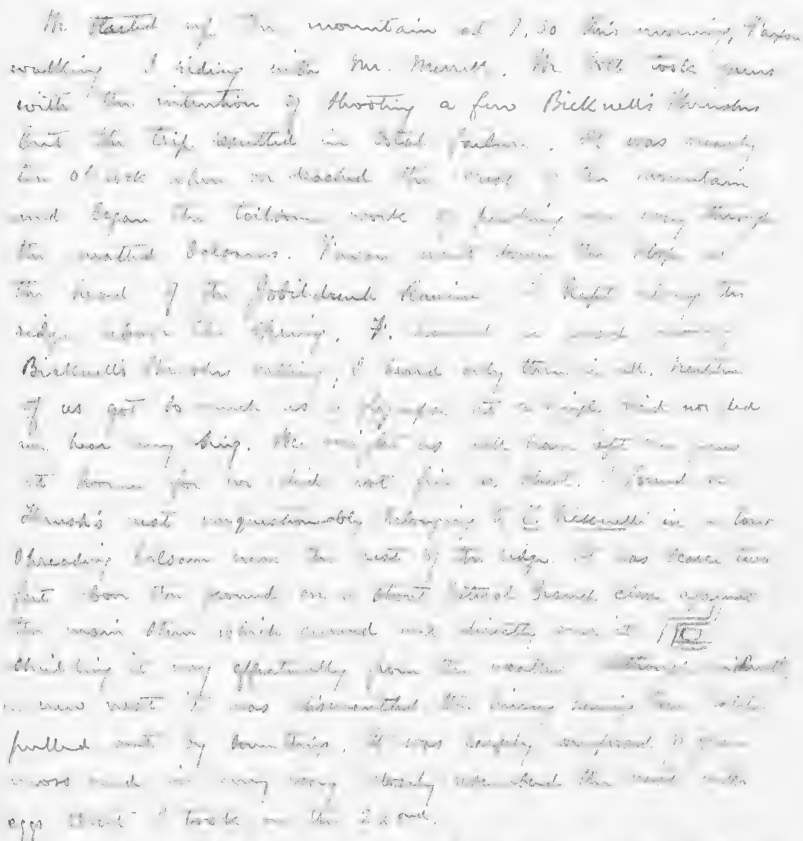 We started up the mountain at 7.30 this morning, Faxon
walking I riding with Mr. Merrill. We both took guns
with the intention of shooting a few Bicknell's Thrushes
but the trip resulted in total failure. It was nearly
ten o'clock when we reached the crest of the mountain
and began the toilsome work of pushing our way through
the matted balsams. Faxon went down the slope at
the head of the Ravine I kept along the
ridge above the Spring. F. heard a good many
Bicknell's Thrushes calling, I heard only three in all. Neither
of us got so much as a glimpse at a single bird nor did
we hear any sing. We might as well have left our guns
at home for we did not fire a shot. I found a
Thrush's nest unquestionably belonging to in a low
spreading balsam near the crest of the ridge. It was scarce two
feet above the ground on a stout lateral branch close against
the main stem which curved out directly over it
shielding it very effectually from the weather. Although evidently
a new nest it was dismantled the lining having been
pulled out by It was largely composed of green
moss and in every way closely resembled the nest with
eggs that I took on the 22nd.